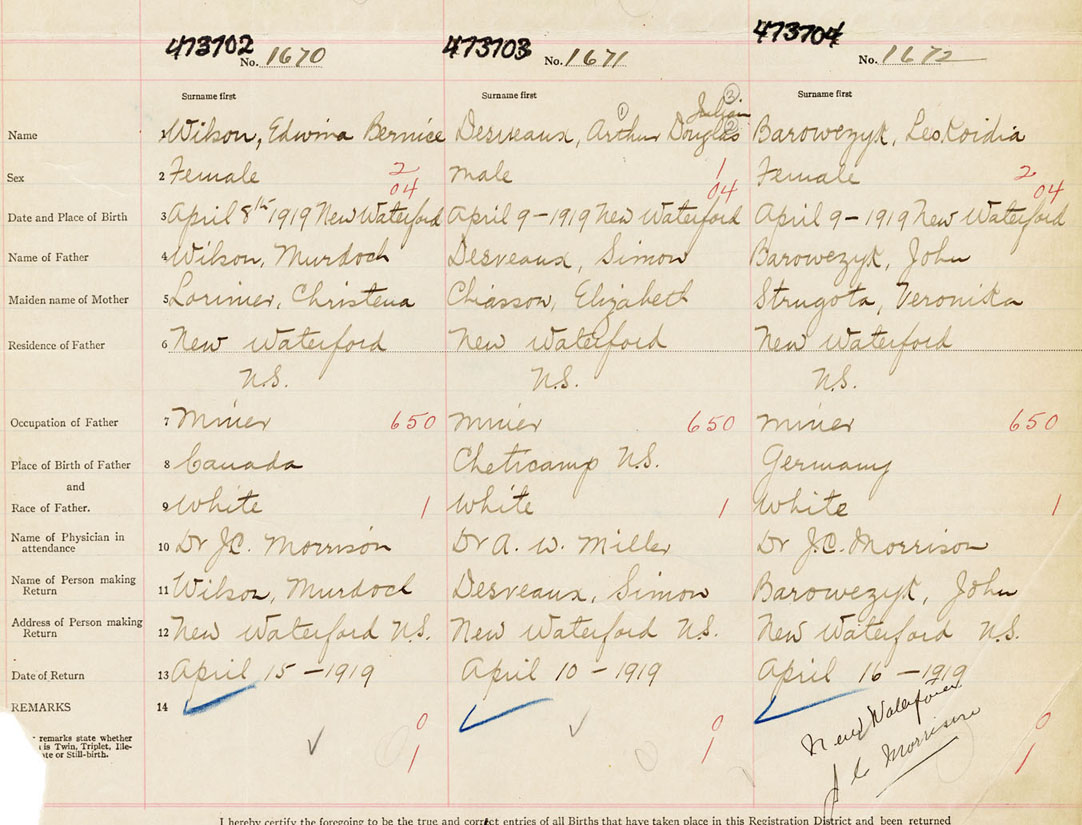 473702 473703 473704
No. 1670 No. 1671 No. 1672
Surname first Surname first Surname first
③
① Julian
Name 1 Wilson, Edwina Bernice Desveaux, Arthur Douglas ② Barowezyk, Leokoidia
Sex 2 Female 2 male 1 Female 2
04 04 04
Date and Place of Birth 3 April 8th 1919 New Waterford April 9 - 1919 New Waterford April 9 - 1919 New Waterford
Name of Father 4 Wilson, Murdoch Desveaux, Simon Barowezyk, John
Maiden name of Mother 5 Lorimer, Christena Chiasson, Elizabeth Strugota, Veronika
Residence of Father 6 New Waterford New Waterford New Waterford
N.S. N.S. N.S.
Occupation of Father 7 Miner 650 miner 650 miner 650
Place of Birth of Father 8 Canada Cheticamp N.S. Germany
and
Race of Father. 9 White 1 White 1 White 1
Name of Physician in
attendance 10 Dr J.C. Morrison Dr A. W. Miller Dr J.C. Morrison
Name of Person making
Return 11 Wilson, Murdoch Desveaux, Simon Barowezyk, John
Address of Person making
Return 12 New Waterford N.S. New Waterford N.S. New Waterford N.S.
Date of Return 13 April 15 - 1919 April 10 - 1919 April 16 - 1919
REMARKS 14
New Waterford
J C Morrison
0 0 0
remarks state whether
is Twin, Triplet, Ille-
ate or Still-birth.
1 1 1
I hereby certify the foregoing to be the true and correct entries of all Births that have taken place in this Registration District and been returned